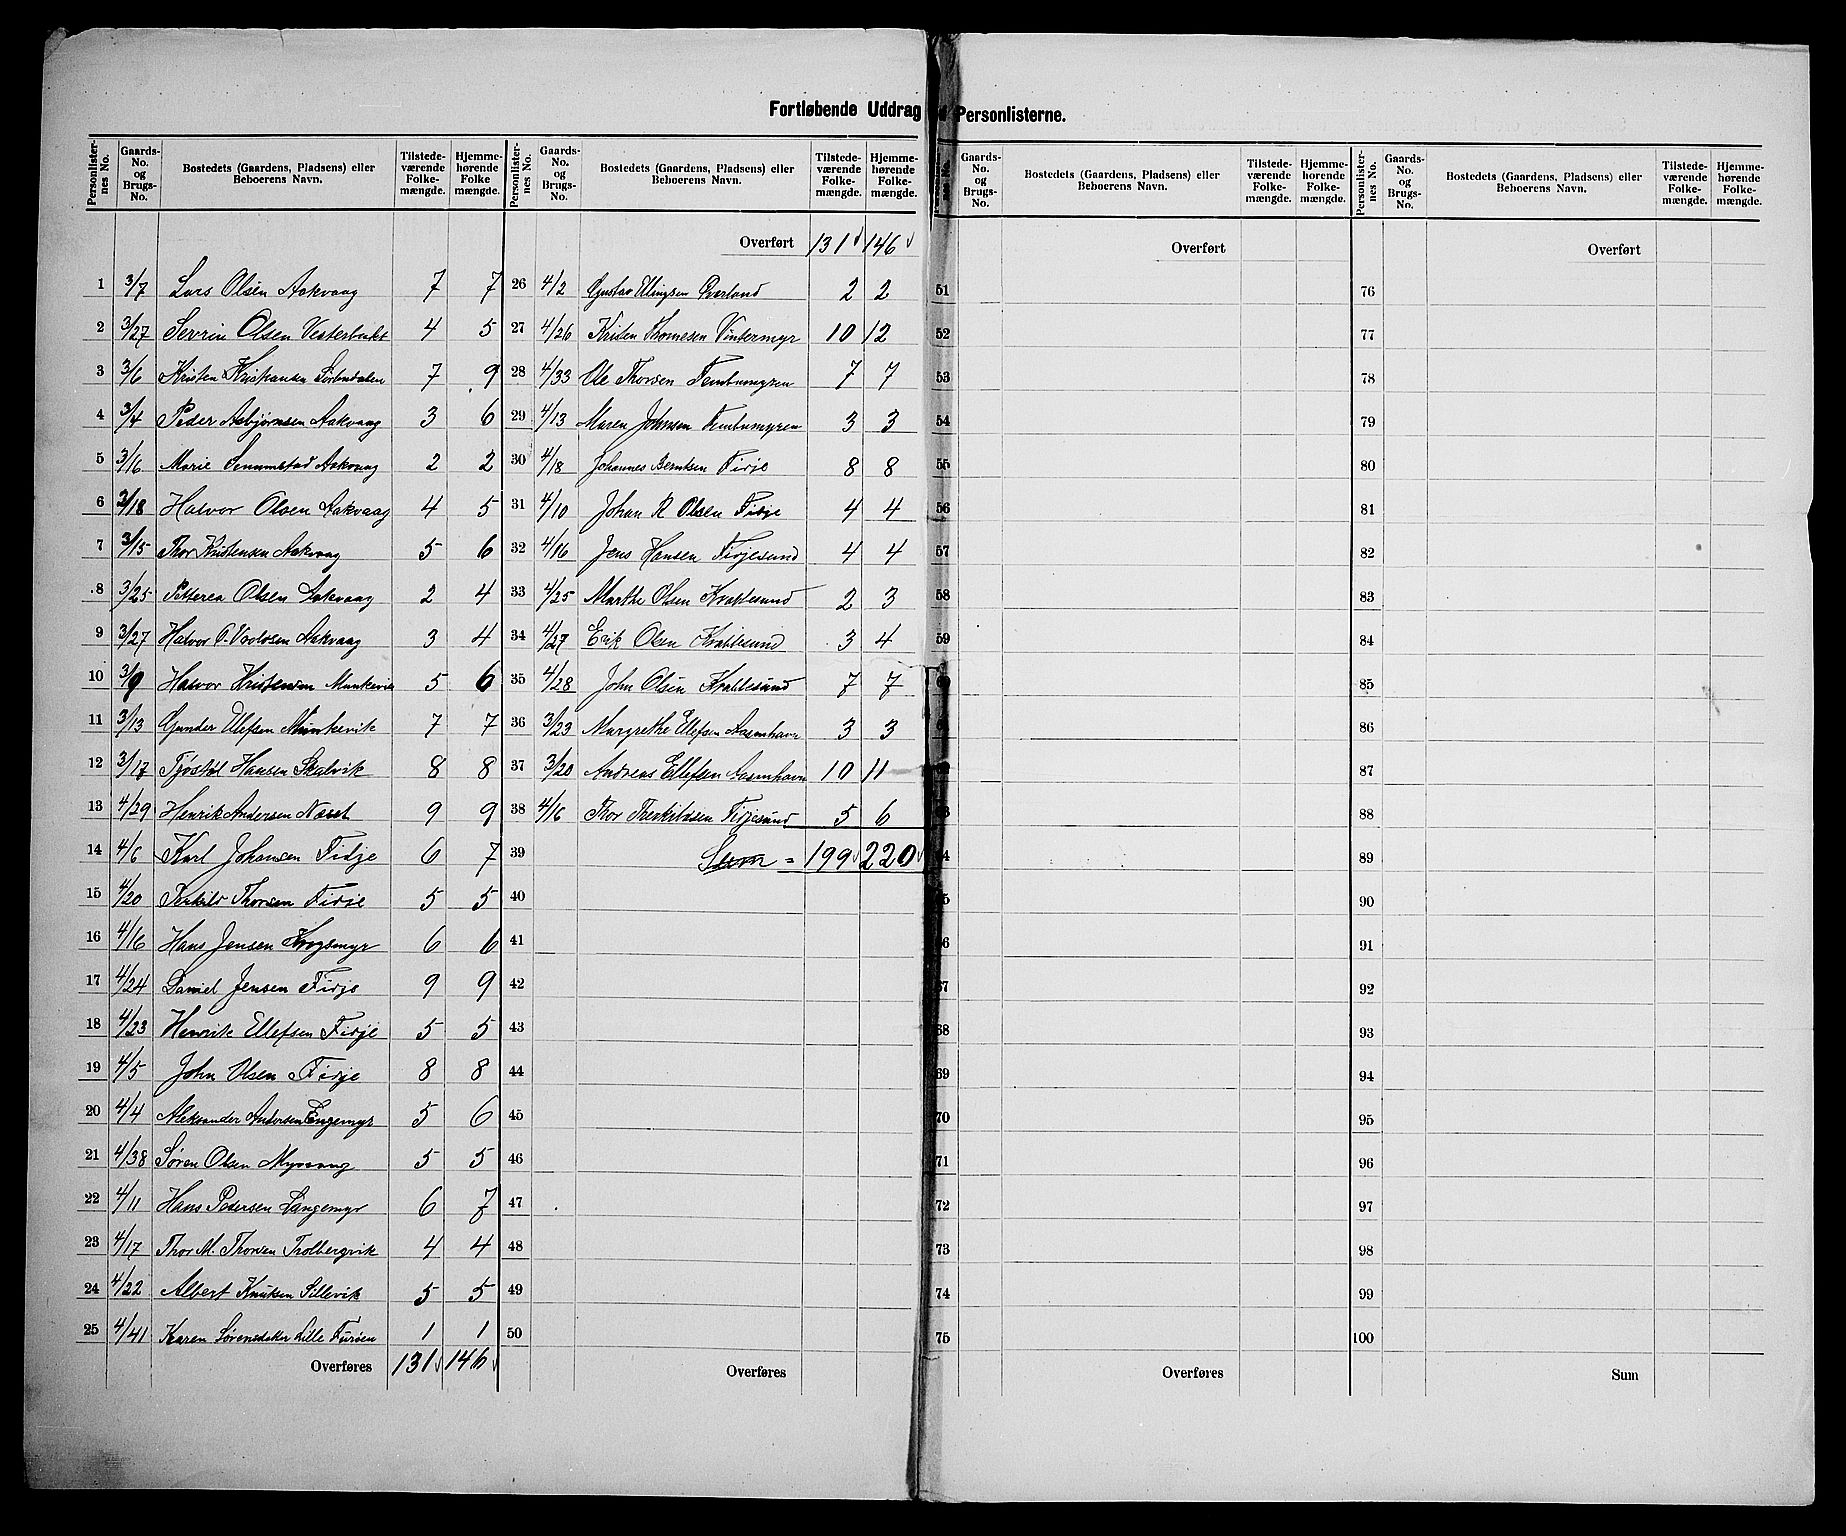 Fortløbende Uddrag Personlisterne.
Personlisternes No. | Gaards-No. og Brugs-No. | Bostedets (Gaardens, Pladsens) eller Beboerens Navn. | Tilstedeværende Folkemængde. | Hjemmehørende Folkemængde.
1 3/7 Lars Olsen Aakvaag 7 7
2 3/27 Sevrin Olsen Vesterbukt 4 5
3 3/6 Kristen Kristiansen 7 9
4 3/4 Peder Asbjørnsen Aakvaag 3 6
5 3/16 Marie Aakvaag 2 2
6 3/18 Halvor Olsen Aakvaag 4 5
7 3/15 Thor Kristensen Aakvaag 5 6
8 3/25 Petterea Olsen Aakvaag 2 4
9 3/27 Halvor O. Aakvaag 3 4
10 3/9 Halvor Kristensen Munkevik 5 6
11 3/13 Gunder Olefsen Munkevik 7 7
12 3/17 Tjøstøl Hansen Skalvik 8 8
13 4/29 Henrik Andersen Næset 9 9
14 4/6 Karl Johansen Fidje 6 7
15 4/20 Terkild Thorsen Fidje 5 5
16 4/16 Hans Jensen Krogsmyr 6 6
17 4/24 Daniel Jensen Fidje 9 9
18 4/23 Henrik Ellefsen Fidje 5 5
19 4/5 John Olsen Fidje 8 8
20 4/4 Aleksander Andersen Engemyr 5 6
21 4/38 Søren Olsen Myrvang 5 5
22 4/11 Hans Pedersen Langemyr 6 7
23 4/17 Thor M. Thorsen Trolbergvik 4 4
24 4/22 Albert Knutsen Sillevik 5 5
25 4/41 Karen Sørensdater Lille Furøen 1 1
Overføres 131 146
Personlisternes No. | Gaards-No. og Brugs-No. | Bostedets (Gaardens, Pladsens) eller Beboerens Navn. | Tilstedeværende Folkemængde. | Hjemmehørende Folkemængde.
Overført 131 146
26 4/2 Gustav Ellingsen Overland 2 2
27 4/26 Kristen Thomesen Vintermyr 10 12
28 4/33 Ole Thorsen 7 7
29 4/13 Maren Johnsen 3 3
30 4/18 Johannes Berntsen Fidje 8 8
31 4/10 Johan R Olsen Fidje 4 4
32 4/16 Jens Hansen Fidjesund 4 4
33 4/25 Marthe Olsen Krabbesund 2 3
34 4/27 Erik Olsen Krabbesund 3 4
35 4/28 John Olsen Krabbesund 7 7
36 3/23 Margrethe Ellefsen Aasmhavn 3 3
37 3/20 Andreas Ellefsen Aasmhavn 10 11
38 4/16 Thor Therkildsen Fidjesund 5 6
39 Sum = 199 220
40
41
42
43
44
45
46
47
48
49
50
Overføres
Gaards-No. og Brugs-No. | Bostedets (Gaardens, Pladsens) eller Beboerens Navn. | Tilstedeværende Folkemængde. | Hjemmehørende Folkemængde.
Overført
51
52
53
54
55
56
57
58
59
68
69
70
71
72
73
74
75
Overføres
Personlisternes No. | Gaards-No. og Brugs-No. | Bostedets (Gaardens, Pladsens) eller Beboerens Navn. | Tilstedeværende Folkemængde. | Hjemmehørende Folkemængde.
Overført
76
77
78
79
80
81
82
83
84
85
86
87
88
89
90
91
92
93
94
95
96
97
98
99
100
Sum